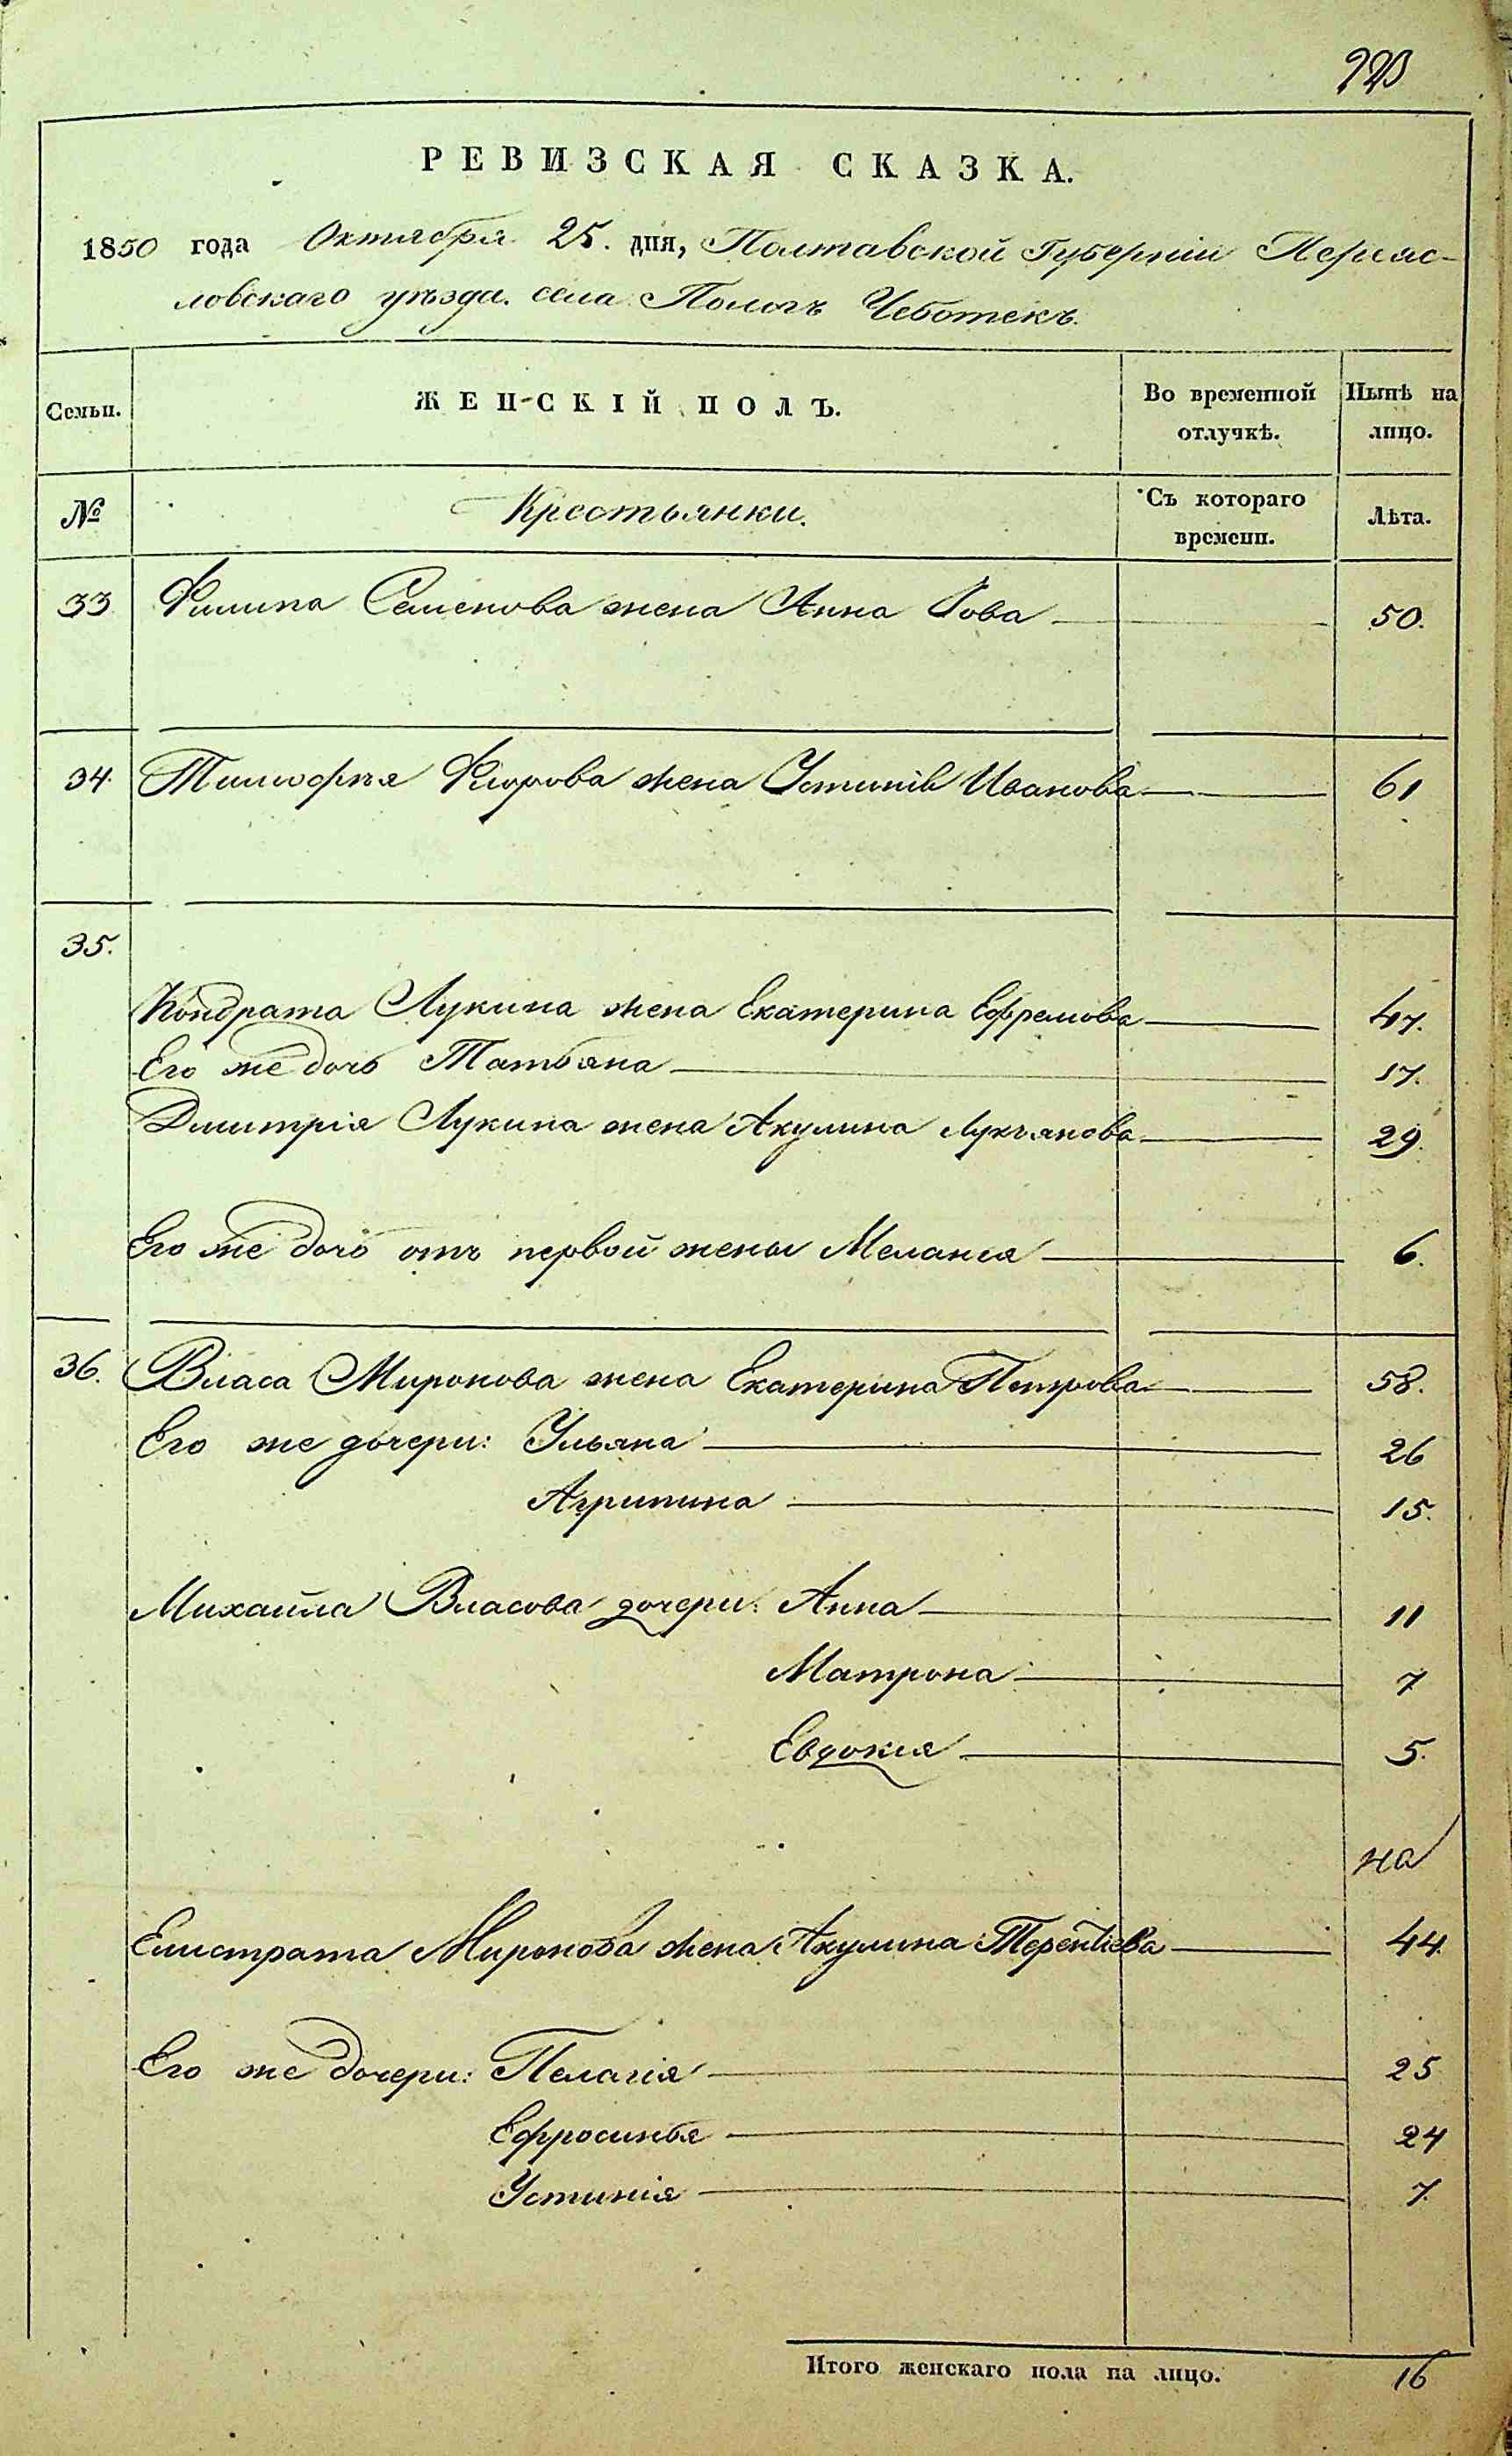 223
РЕВИЗСКАЯ СКАЗКА.
1850 года Октября 25. дня, Полтавской Губерніи Переяс-
ловскаго уѣзда. села Пологъ Чеботекъ.
Семьи.
ЖЕНСКІЙ ПОЛЪ.
Во временной отлучкѣ.
Нынѣ на лицо.
№
Крестьянки.
Съ котораго времени.
Лѣта.
33 Филипа Семенова жена Анна 50.
34. Тимофѣя жена Устинія Иванова 61
35.
Кондрата Лукина жена Екатерина Ефремова 47.
Его же дочь Татьяна 17.
Дмитрія Лукина жена Акулина Лукъянова 29.
Его же дочь отъ первой жены Меланія 6.
36. Власа Миронова жена Екатерина Петрова 58.
Его же дочери: Ульяна 26
Агрипина 15.
Михайла Власова дочери: Анна 11
Матрона 7
Евдокия 5.
на
Елистрата Миронова жена Акулина Терентіева 44.
Его же дочери: Пелагія 25
Ефросинья 24
Устинія 7.
Итого женскаго пола на лицо. 16